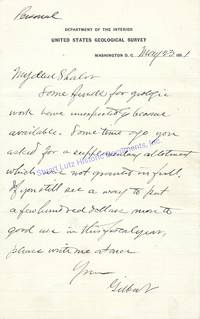 Personal
DEPARTMENT OF THE INTERIOR
UNITED STATES GEOLOGICAL SURVEY
WASHINGTON D.C. May 23 1891
My dear Shaler
Some funds for geologic
work have unexpectedly become
available. Some time ago you
asked for a supplementary allotment
which was not granted in full.
If you still see a way to put
a few hundred dollars more to
good use in this fiscal year,
please write me at once
Yours
Gilbert